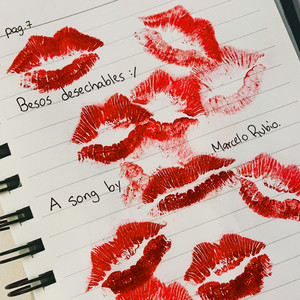 pag.7
Besos desechables :/
A song by
Marcelo Rubio.